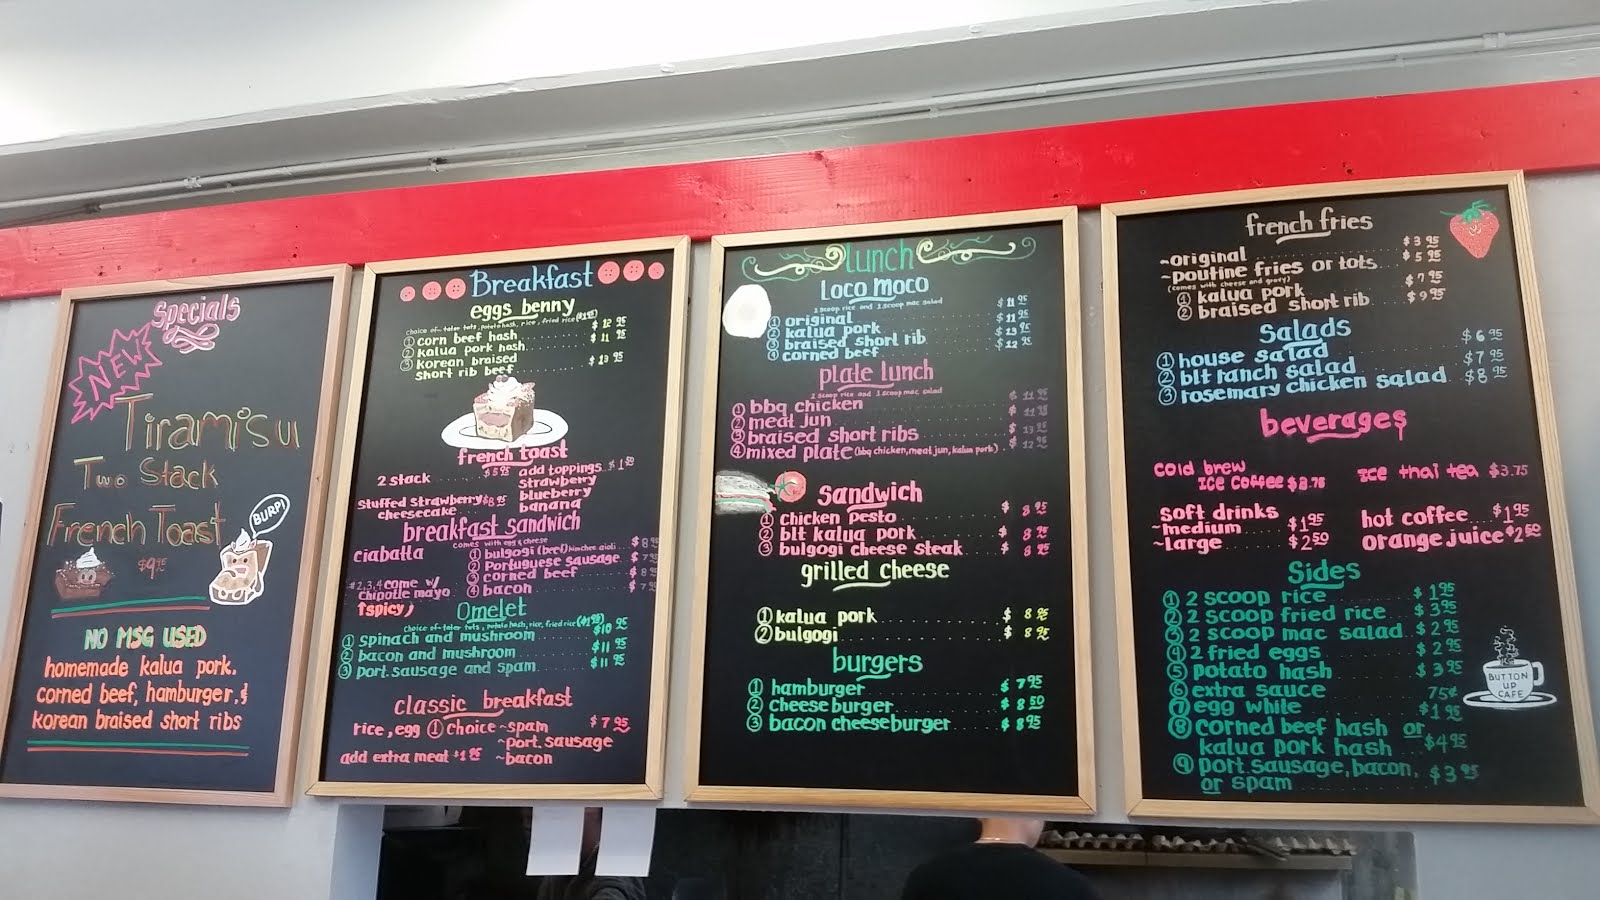 Specials
NEW
Tiramisu
Two Stack
French Toast
$9.95
BURP!
NO MSG USED
homemade kalua pork,
corned beef, hamburger, &
korean braised short ribs
Breakfast
eggs benny
choice of ~ tater tots, potato hash, rice, fried rice ($1.95)
① corn beef hash $12.95
② kalua pork hash $11.95
③ korean braised
short rib beef $13.95
french toast
2 stack $5.95 add toppings $1.50
strawberry
stuffed strawberry $8.95 blueberry
cheesecake banana
breakfast sandwich
comes with egg & cheese
ciabatta ① bulgogi (beef) kimchee aioli $8.95
② Portuguese sausage $7
③ corned beef $8
#2,3,4 come w/ ④ bacon $7
chipotle mayo
↑spicy)
Omelet
choice of ~ tater tots, potato hash, rice, fried rice ($1.95)
① spinach and mushroom $10.95
② bacon and mushroom $11.95
③ port. sausage and spam $11.95
classic breakfast
rice, egg ① choice ~ spam $7.95
~ port. sausage
add extra meat $1.95 ~ bacon
Lunch
Loco moco
2 scoop rice and 1 scoop mac salad
① original $11.95
② kalua pork $11.95
③ braised short rib $13.95
④ corned beef $12.95
plate lunch
2 scoop rice and 1 scoop mac salad
① bbq chicken $11.95
② meat jun $11.95
③ braised short ribs $13.95
④ mixed plate (bbq chicken, meat jun, kalua pork) $12.95
Sandwich
① chicken pesto $8.95
② blt kalua pork $8.95
③ bulgogi cheese steak $8.95
grilled cheese
① kalua pork $8.95
② bulgogi $8.95
burgers
① hamburger $7.95
② cheeseburger $8.50
③ bacon cheeseburger $8.95
french fries
~original $3.95
~poutine fries or tots $5.95
(comes with cheese and gravy)
① kalua pork $7.95
② braised short rib $9.95
Salads
① house salad $6.95
② blt ranch salad $7.95
③ rosemary chicken salad $8.95
beverages
cold brew
ICE coffee $3.75 ICE thai tea $3.75
soft drinks
~medium $1.95 hot coffee $1.95
~large $2.50 orange juice $2.50
Sides
① 2 scoop rice $1.95
② 2 scoop fried rice $3.95
③ 2 scoop mac salad $2.95
④ 2 fried eggs $2.95
⑤ potato hash $3.95
⑥ extra sauce 75¢
⑦ egg while $1.95
⑧ corned beef hash or
kalua pork hash $4.95
⑨ port. sausage, bacon,
or spam $3.95
BUTTON
UP
CAFE